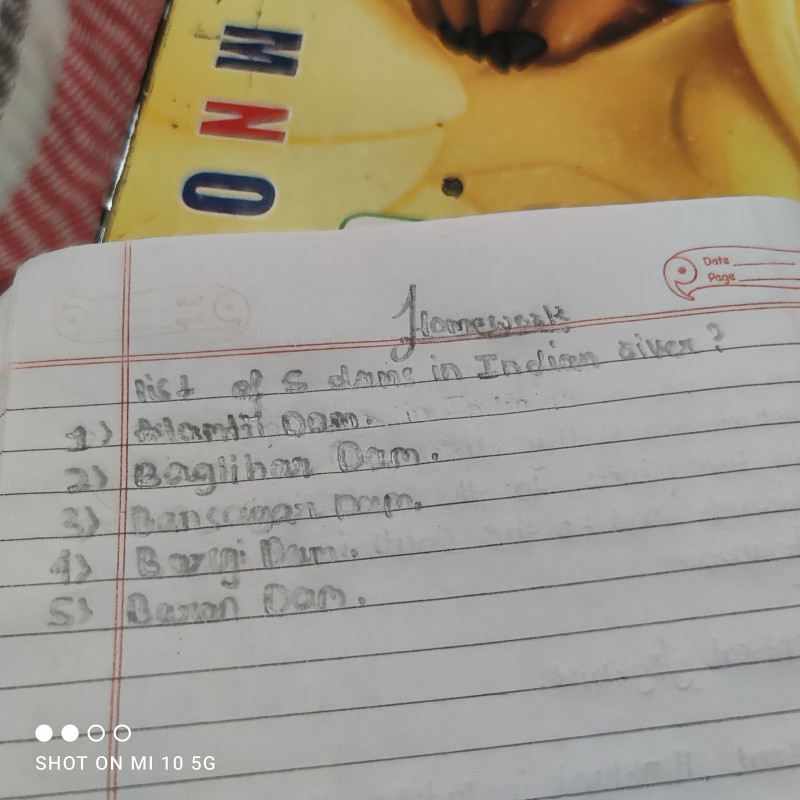 M
N
O
Date
Page
Homework
list of 5 dams in Indian river?
1) Dam.
2) Baglihar Dam.
3) Bansagar Dam.
4) Bargi Dam.
5) Dam.
SHOT ON MI 10 5G